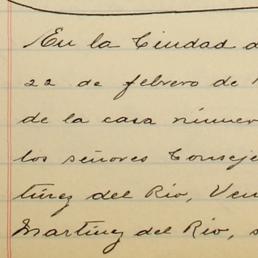 En la Ciudad d
22 de febrero de
de la casa númer
los señores Conseje
tínez del Río, Ven
Martínez del Río, s